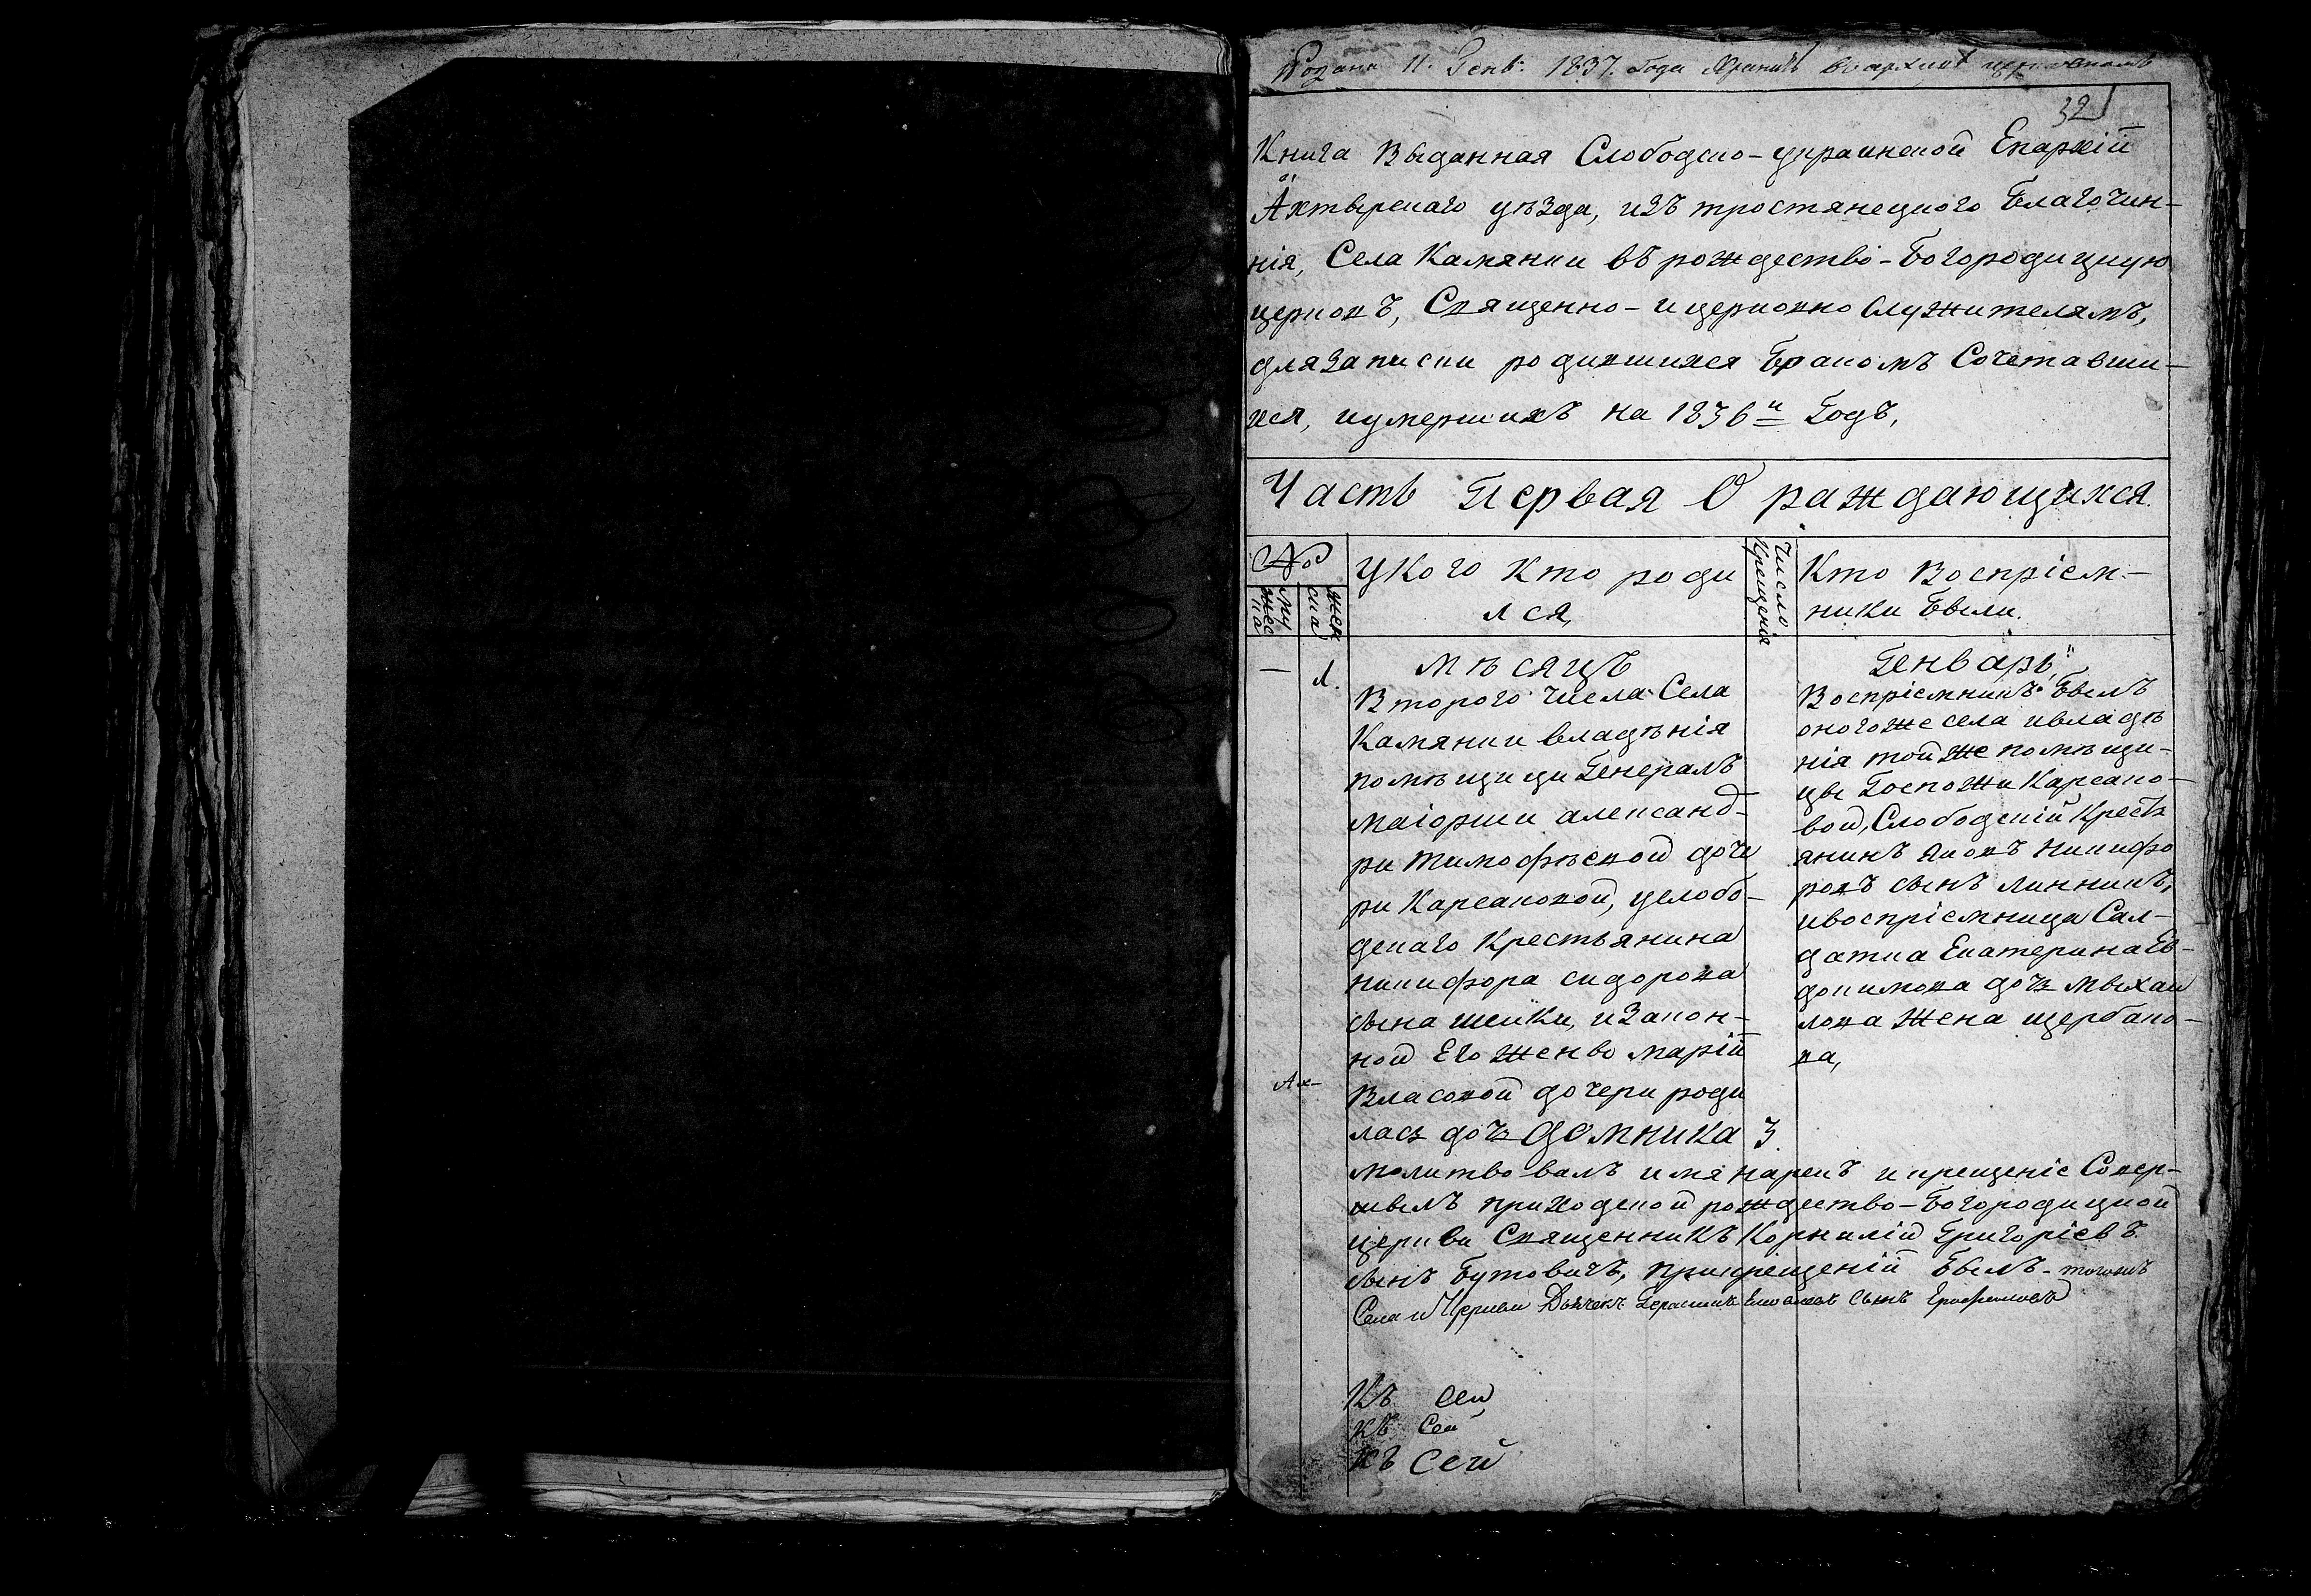 11. Генв: 1837. Года
32
Книга Выданная Слободско-украинской Епархій
Ахтырскаго уѣзда, изъ тростянецкого Благочин-
нія, Села Камянки въ рождество-Богородицкую
церковъ, Священно- и церковно Служителямъ,
для Записки родившихся Бракомъ Сочетавши-
хся, и умершихъ на 1836й Годъ,
Часть Первая О раждающихся.
№
мужеска
женска
у Кого Кто роди
лся,
Число Крещенія
Кто Воспріем-
ники Были.
— 1. мѣсяцъ
Второго числа Села
Камянки владѣнія
помѣщицы Генералъ
маіорши александ-
ри тимофѣевой доче
ри Карсаковой, услобо-
дскаго Крестьянина
никифора сидорова
сына шейки, и Закон-
ной Его жены марій
Власовой дочери роди
лась дочь домника 3
Генварь,
Воспріемникъ Былъ
оногоже села и владѣ
нія той же помѣщи-
цы Госпожи Карсако-
вой, Слободскій Кресть
янинъ яковъ Никифо
ровъ сынъ линникъ,
и воспріемница Сал-
датка Екатерина Ев-
докимова дочь мыхаи
лова Жена щербако-
ва,
молитвовалъ имя нарекъ и крещеніе Совер-
шилъ приходской рождество-Богородицкой
церкви Священникъ Корнилій Григоріевъ
сынъ Бутовичъ, при крещеній Былъ тогожъ
Села и Церкви Дьячекъ Герасимъ сынъ
Къ сей
къ Сей
Къ Сей